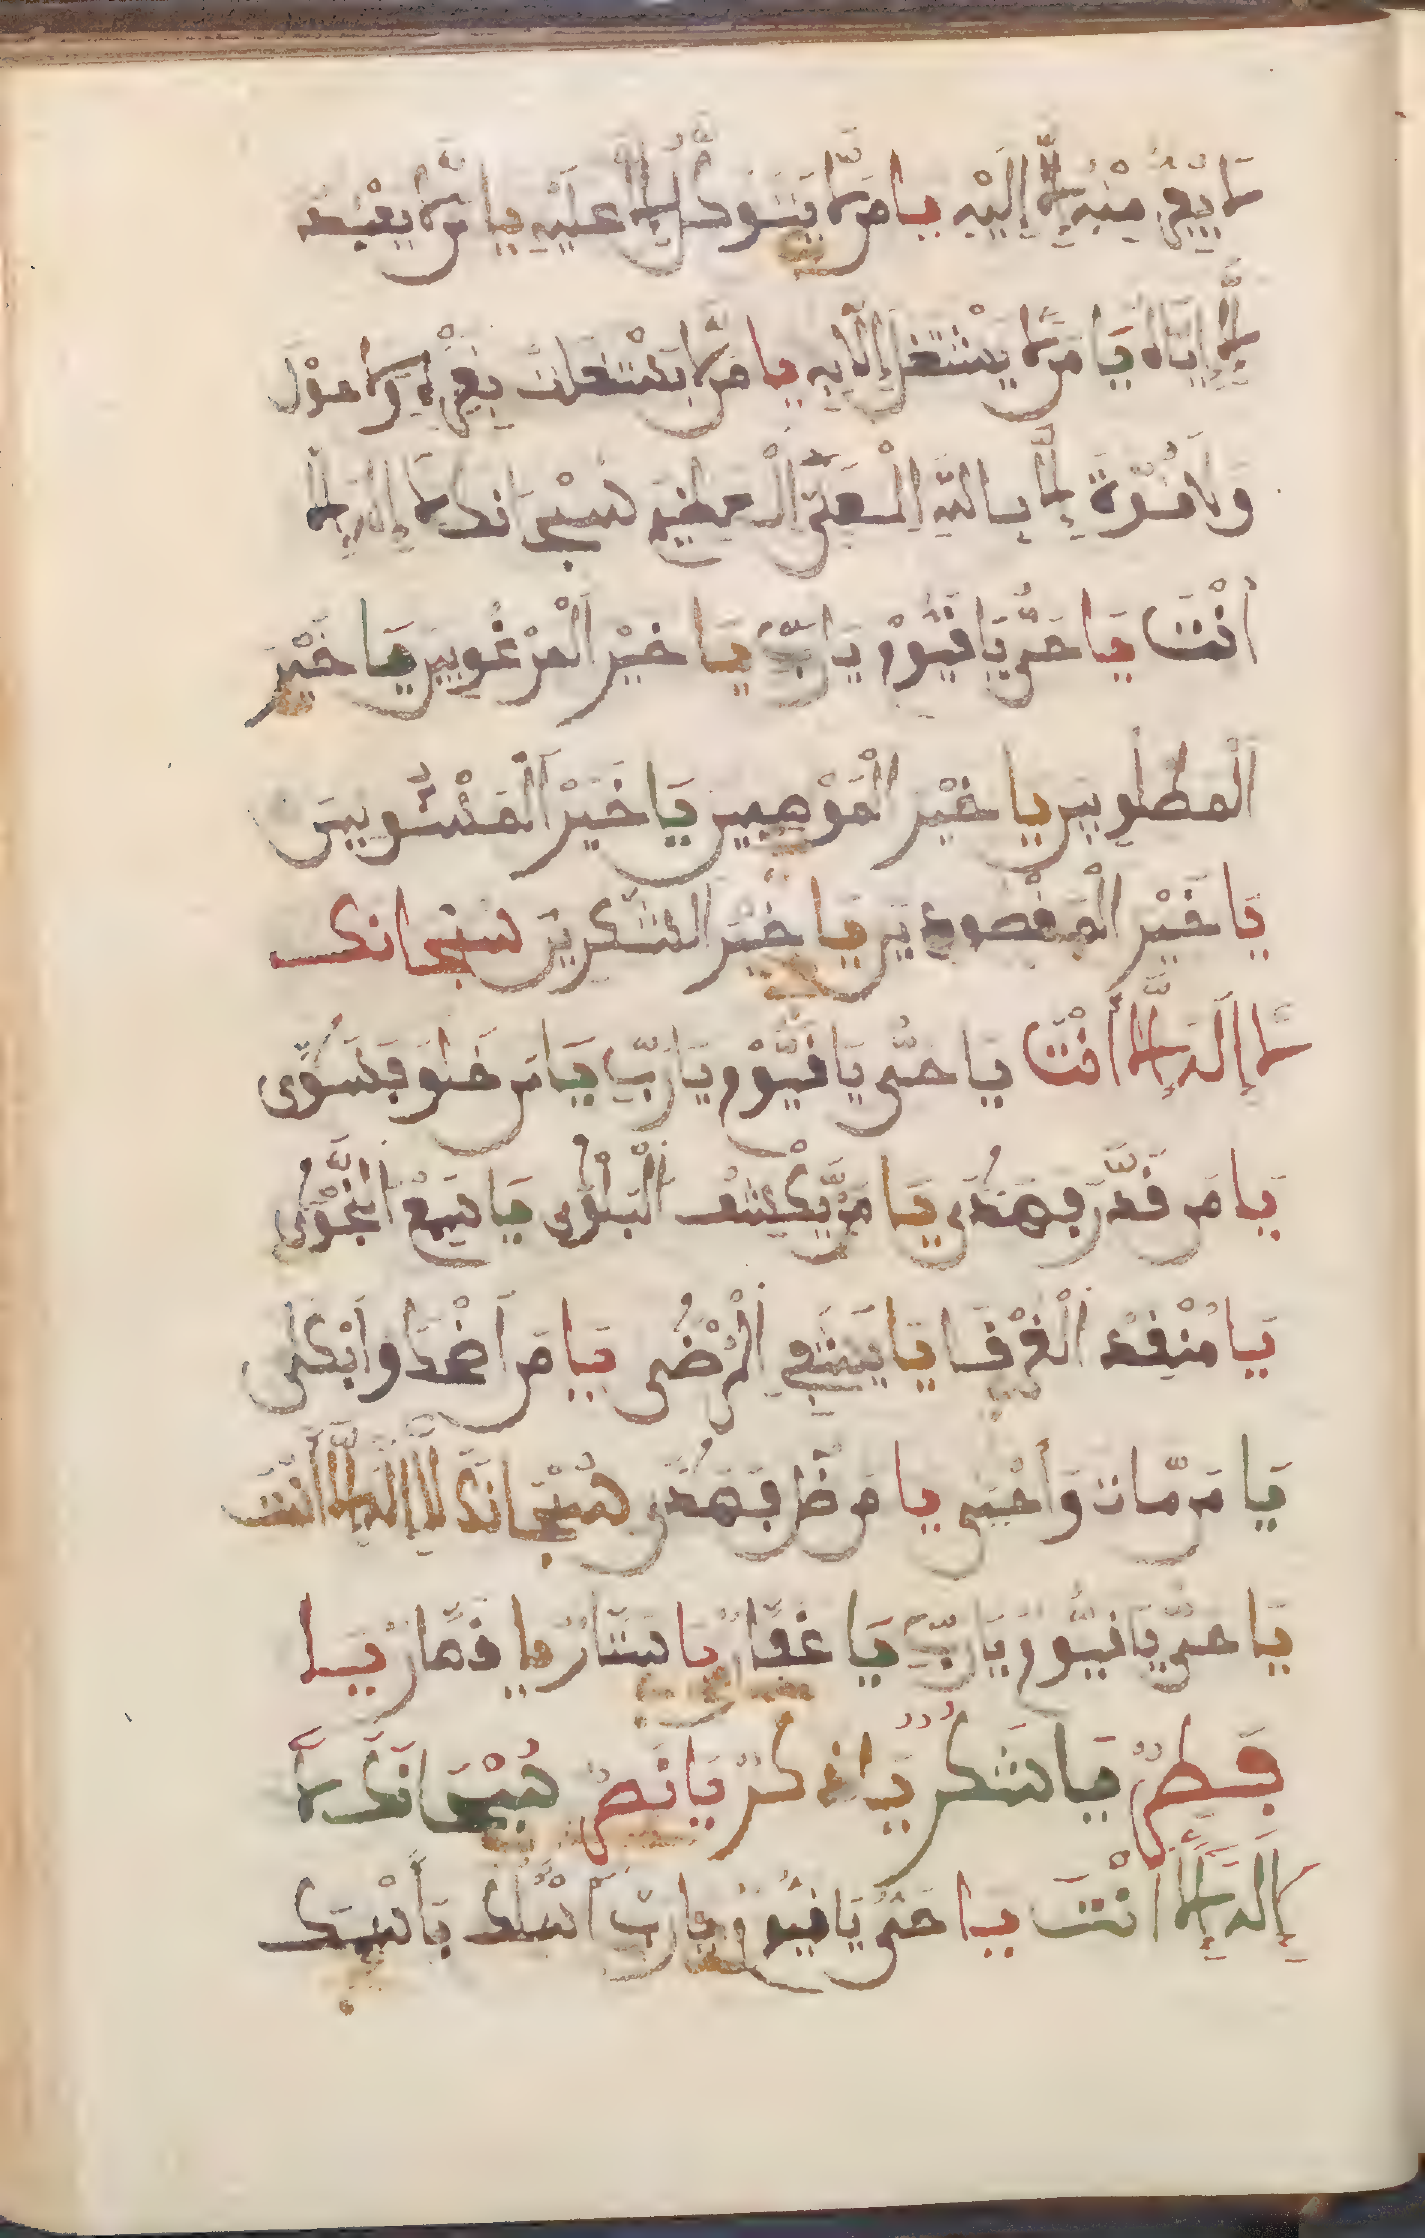 لا يفر منه إلا إليه يا من لا يتوكل إلا عليه يا من لا يعبد
إلا إياه يا من لا يستغل إلا به يا من لا يستغاث بغيره ولا حول
ولا قوة إلا بالله العلي العظيم سبحانك لا إله إلا
أنت يا حي يا قيوم يا رب يا خير المرغوبين يا خير
المطلوبين يا خير الموهبين يا خير المسئولين
يا خير المقصودين يا خير الشكرين سبحانك
لا إله إلا أنت يا حي يا قيوم يا رب يا من خلق فسوى
يا من قدر فهدى يا من يكشف البلوى يا سمع النجوى
يا منقذ الغرقا يا يشفي المرضى يا من أضحك وأبكى
يا من مات وأحيى يا من فهدى سبحانك لا إله إلا أنت
يا حي يا قيوم يا رب يا غفار يا ستار يا قهار يا
يا شكر يا ذكر يا سبحانك لا
إله إلا أنت يا حي يا قيوم يا رب أسلك بأسمك